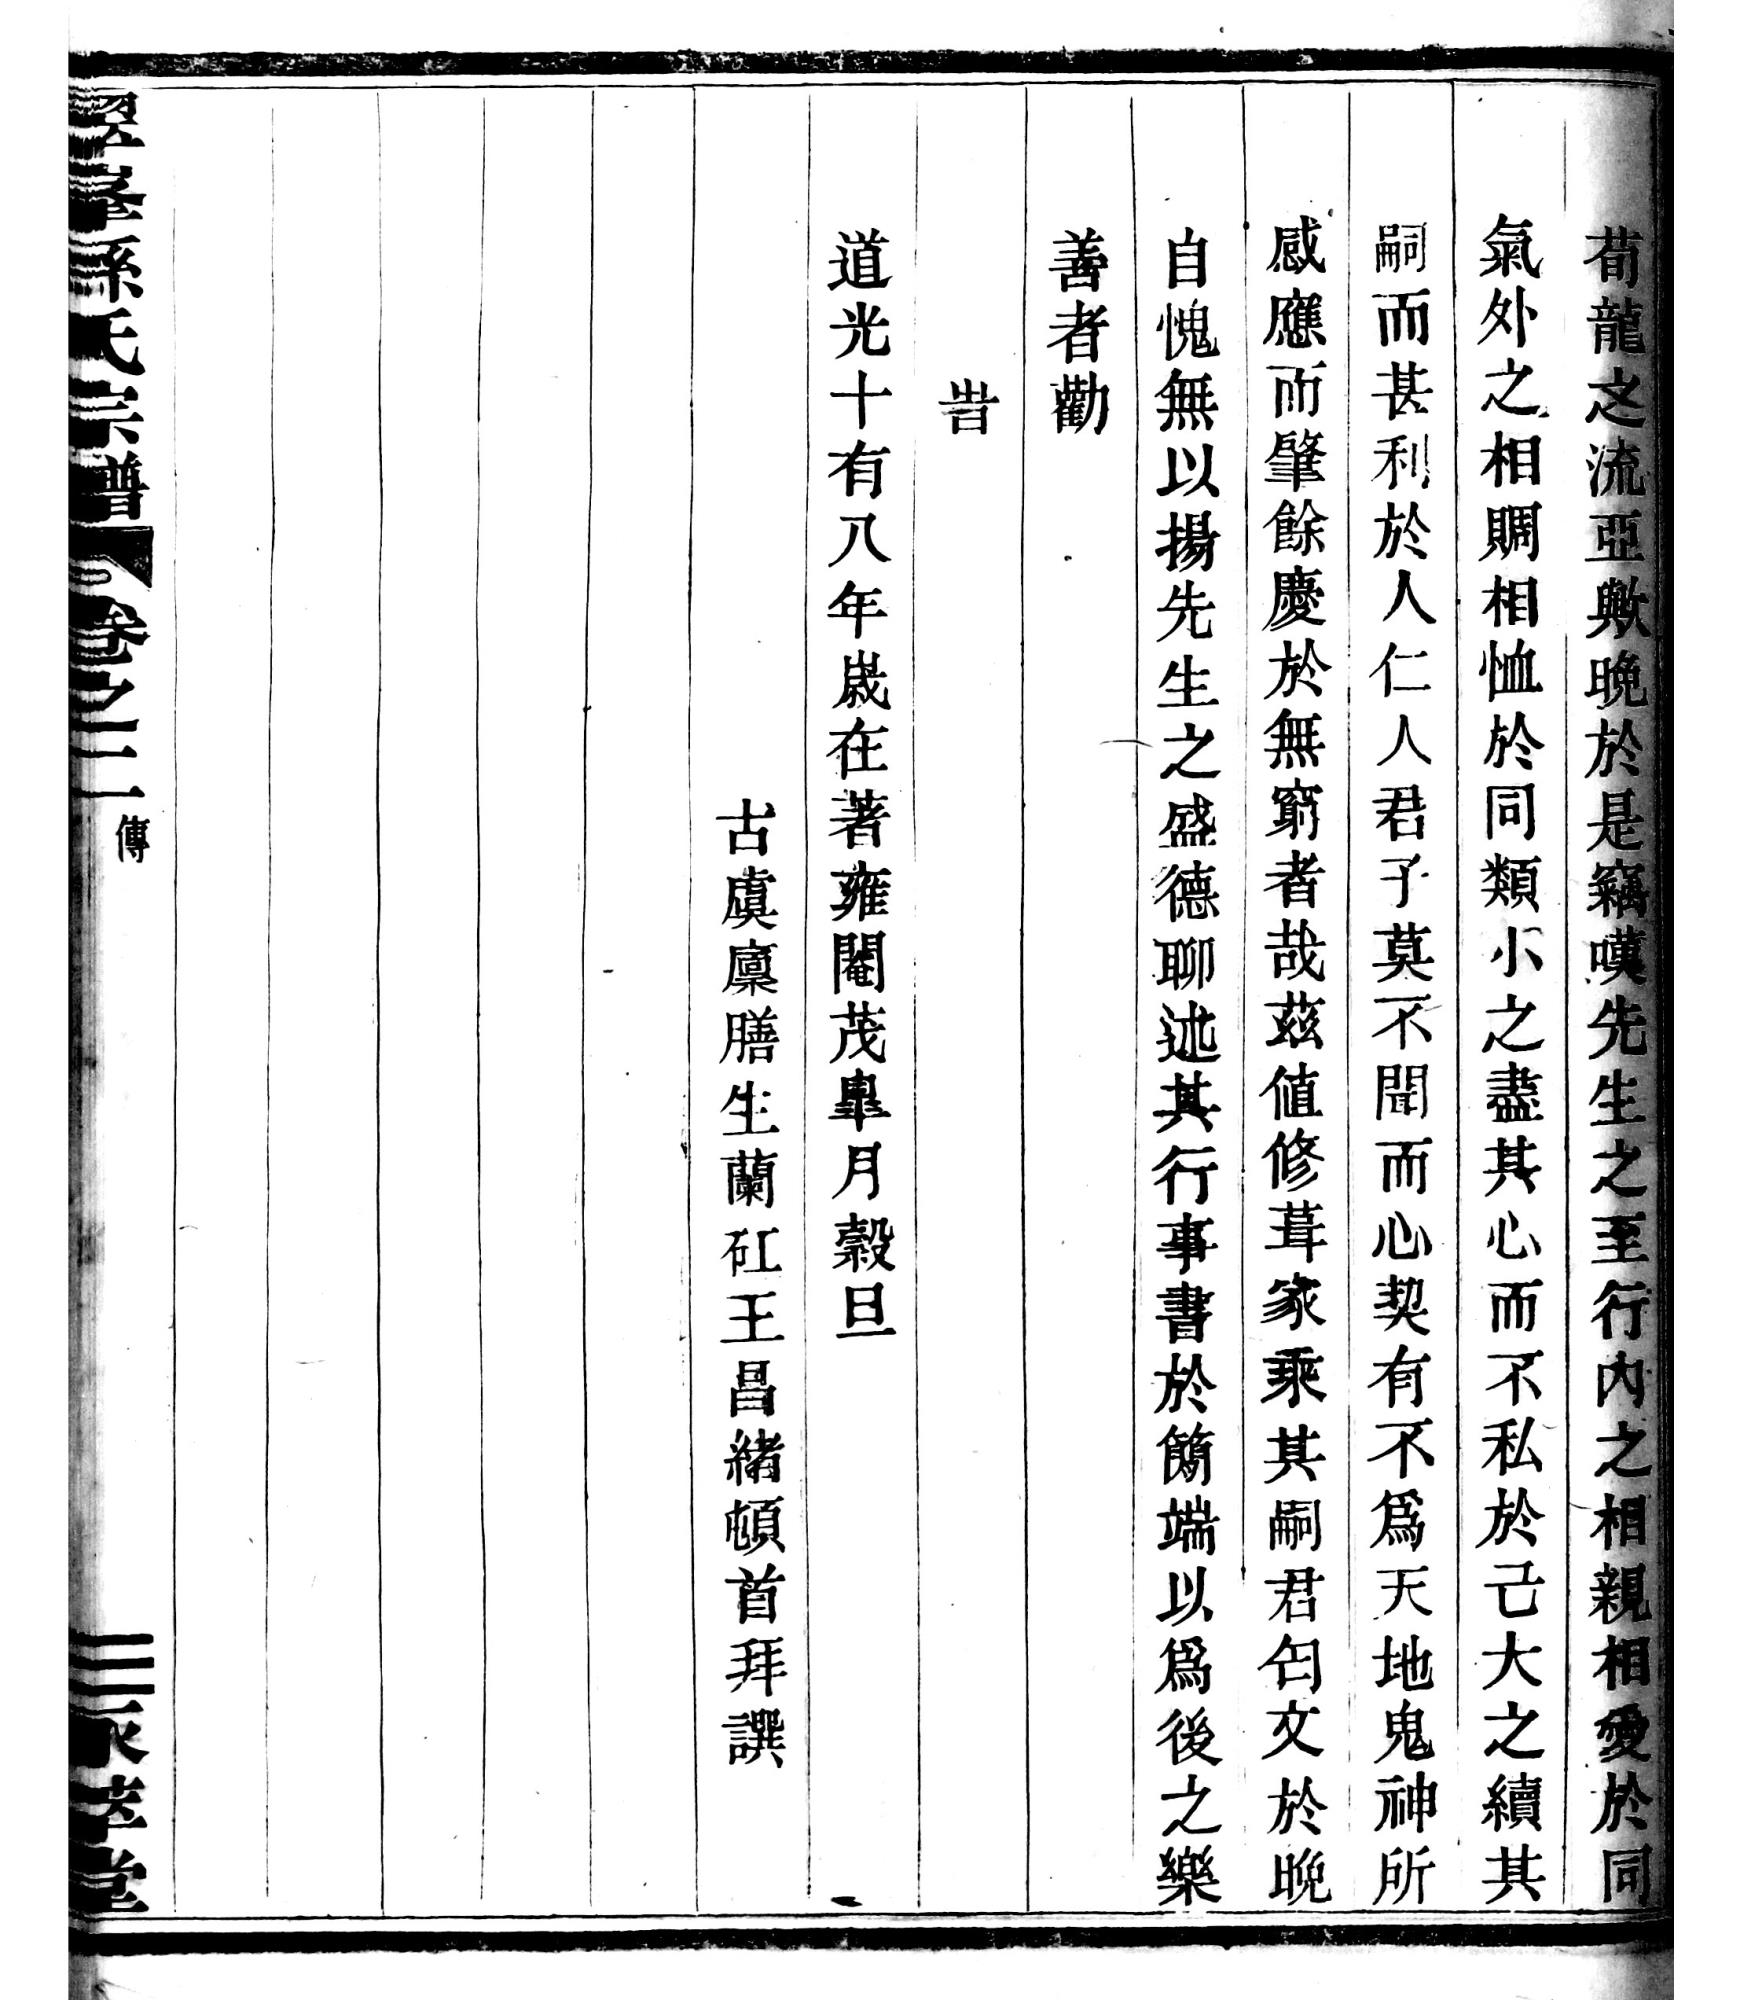 荀龍之流亞歟晚於是竊嘆先生之至行內之相親相愛於同
氣外之相賙相恤於同類小之盡其心而不私於己大之續其
嗣而甚利於人仁人君子莫不聞而心契有不爲天地鬼神所
感應而肇餘慶於無窮者哉茲值修葺家乘其嗣君匄文於晚
自愧無以揚先生之盛德聊述其行事書於簡端以爲後之樂
善者勸
旹
道光十有八年嵗在著雍閹茂臯月穀旦
古虞廩膳生蘭矼王昌緒頓首拜譔
峯孫氏宗譜
卷之二
傳
堂